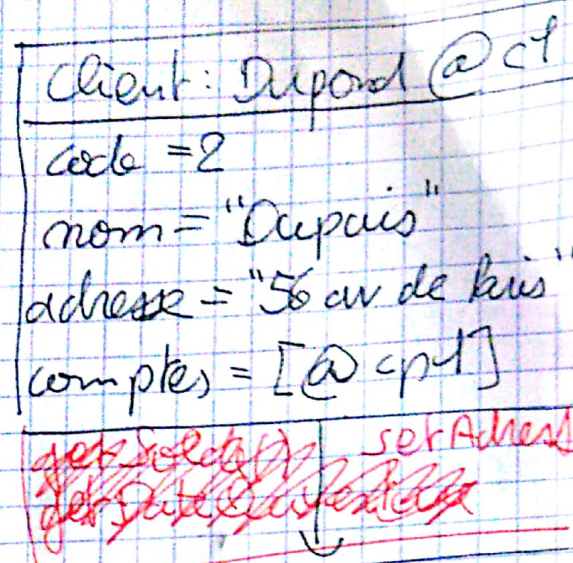 Client: Dupond @ c1
code = 2
nom = "Dupuis"
adresse = "56 av de Paris"
comptes = [@ cp1]
getSolde() setAdress